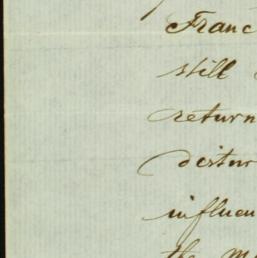 Franc
still
return
distur
influen
the m